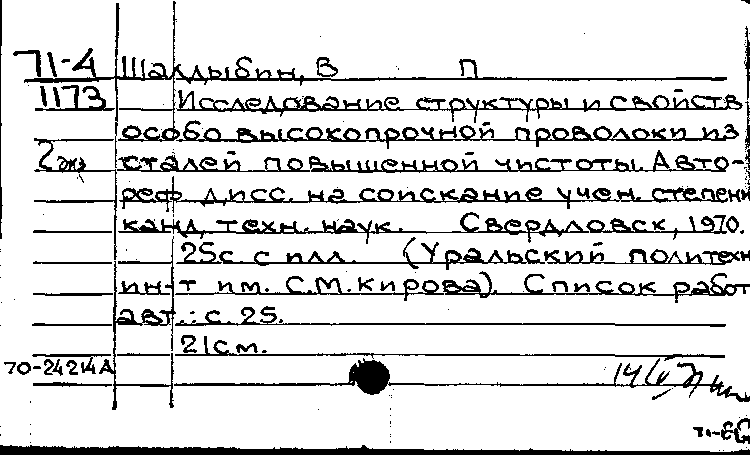 71-4 Шалдыбин, В П
1173 Исследование структуры и свойств
особо высокопрочной проволоки из
2 экз сталей повышенной чистоты. Авто-
реф дисс. на соискание учен. степени
канд. техн. наук. Свердловск, 1970.
25с. с илл. (Уральский политехн
ин-т им. С.М.Кирова). Список работ
авт.: с. 25.
21см.
70-24214А